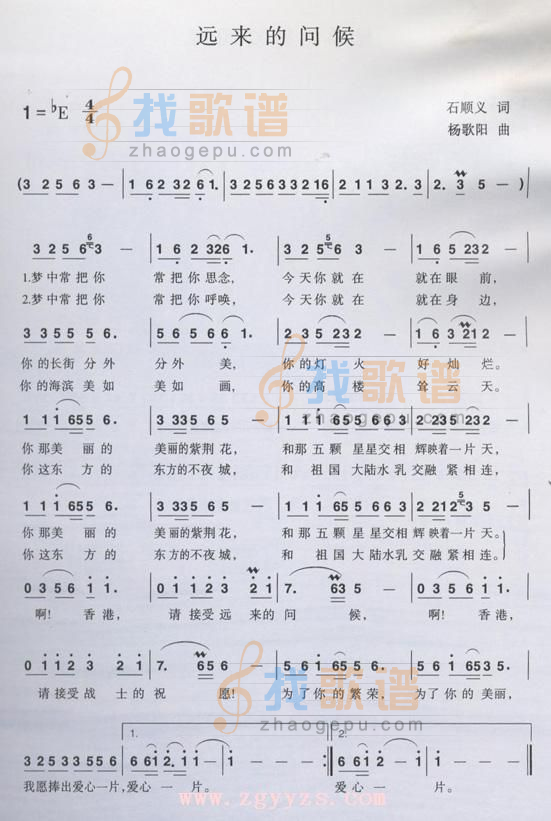 远来的问候
1=♭E 4/4
石顺义 词
杨歌阳 曲
找歌谱
zhaogepu.com
(3 2 5 6 3 — | 1 6 2 3 2 6 1. | 3 2 3 5 6 3 3 2 1 6 | 2 1 1 3 2. 3 | 2. 3 5 — )|
3 2 5 6 3 — | 1 6 2 3 2 6 1. | 3 2 5 6 3 — | 1 6 5 3 2 —
1.梦中常把你 常把你思念, 今天你就在 就在眼前,
2.梦中常把你 常把你呼唤, 今天你就在 就在身边,
3 3 5 5 5 6. | 5 6 5 6 6. | 2 3 5 2 3 2 — | 1 6 3 2 1 —
你的长街分外 分外美, 你的灯火 好灿烂。
你的海滨美如 美如画, 你的高楼 耸云天。
找歌谱
zhaogepu.com
1 1 1 6 5 5. | 3 3 3 5 6 5 — | 1 1 1 6 5 5 6 6 3 | 2 2 3 5 2 3 2 —
你那美丽的 美丽的紫荆花, 和那五颗星星交相辉映着一片天,
你这东方的 东方的不夜城, 和祖国大陆水乳交融紧相连,
1 1 1 6 5 5. | 3 3 3 5 6 5 — | 1 1 1 6 5 5 6 6 3 | 2 2 2 1 2 —
你那美丽的 美丽的紫荆花, 和那五颗星星交相辉映着一片天。
你这东方的 东方的不夜城, 和祖国大陆水乳交融紧相连。
找歌谱
zhaogepu.com
0 3 5 6 1 1. | 0 1 1 2 3 2 1 | 7. 6 3 5 — | 0 3 5 6 1 1.
啊! 香港, 请接受远来的问候, 啊! 香港,
0 1 1 2 2 2 1 | 7. 6 5 6 — | 5 6 1 6 5 5. | 5 6 1 6 5 3 5.
请接受战士的祝愿! 为了你的繁荣, 为了你的美丽,
找歌谱
zhaogepu.com
1. 2.
3 2 5 3 3 5 5 6 | 6 6 1 2. 1 1 | 1 — — — :| 6 6 1 2. 1 | 1 — — — ‖
我愿捧出爱心一片,爱心一片。 爱心一片。
www.zgyyzs.com